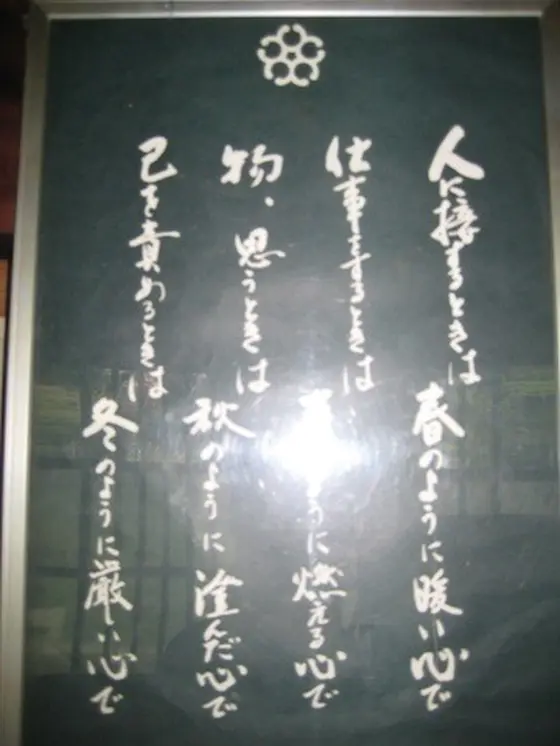 人に接するときは
春のように暖い心で
仕事をするときは
うに燃える心で
物、思うときは
秋のように澄んだ心で
己を責めるときは
冬のように厳しい心で